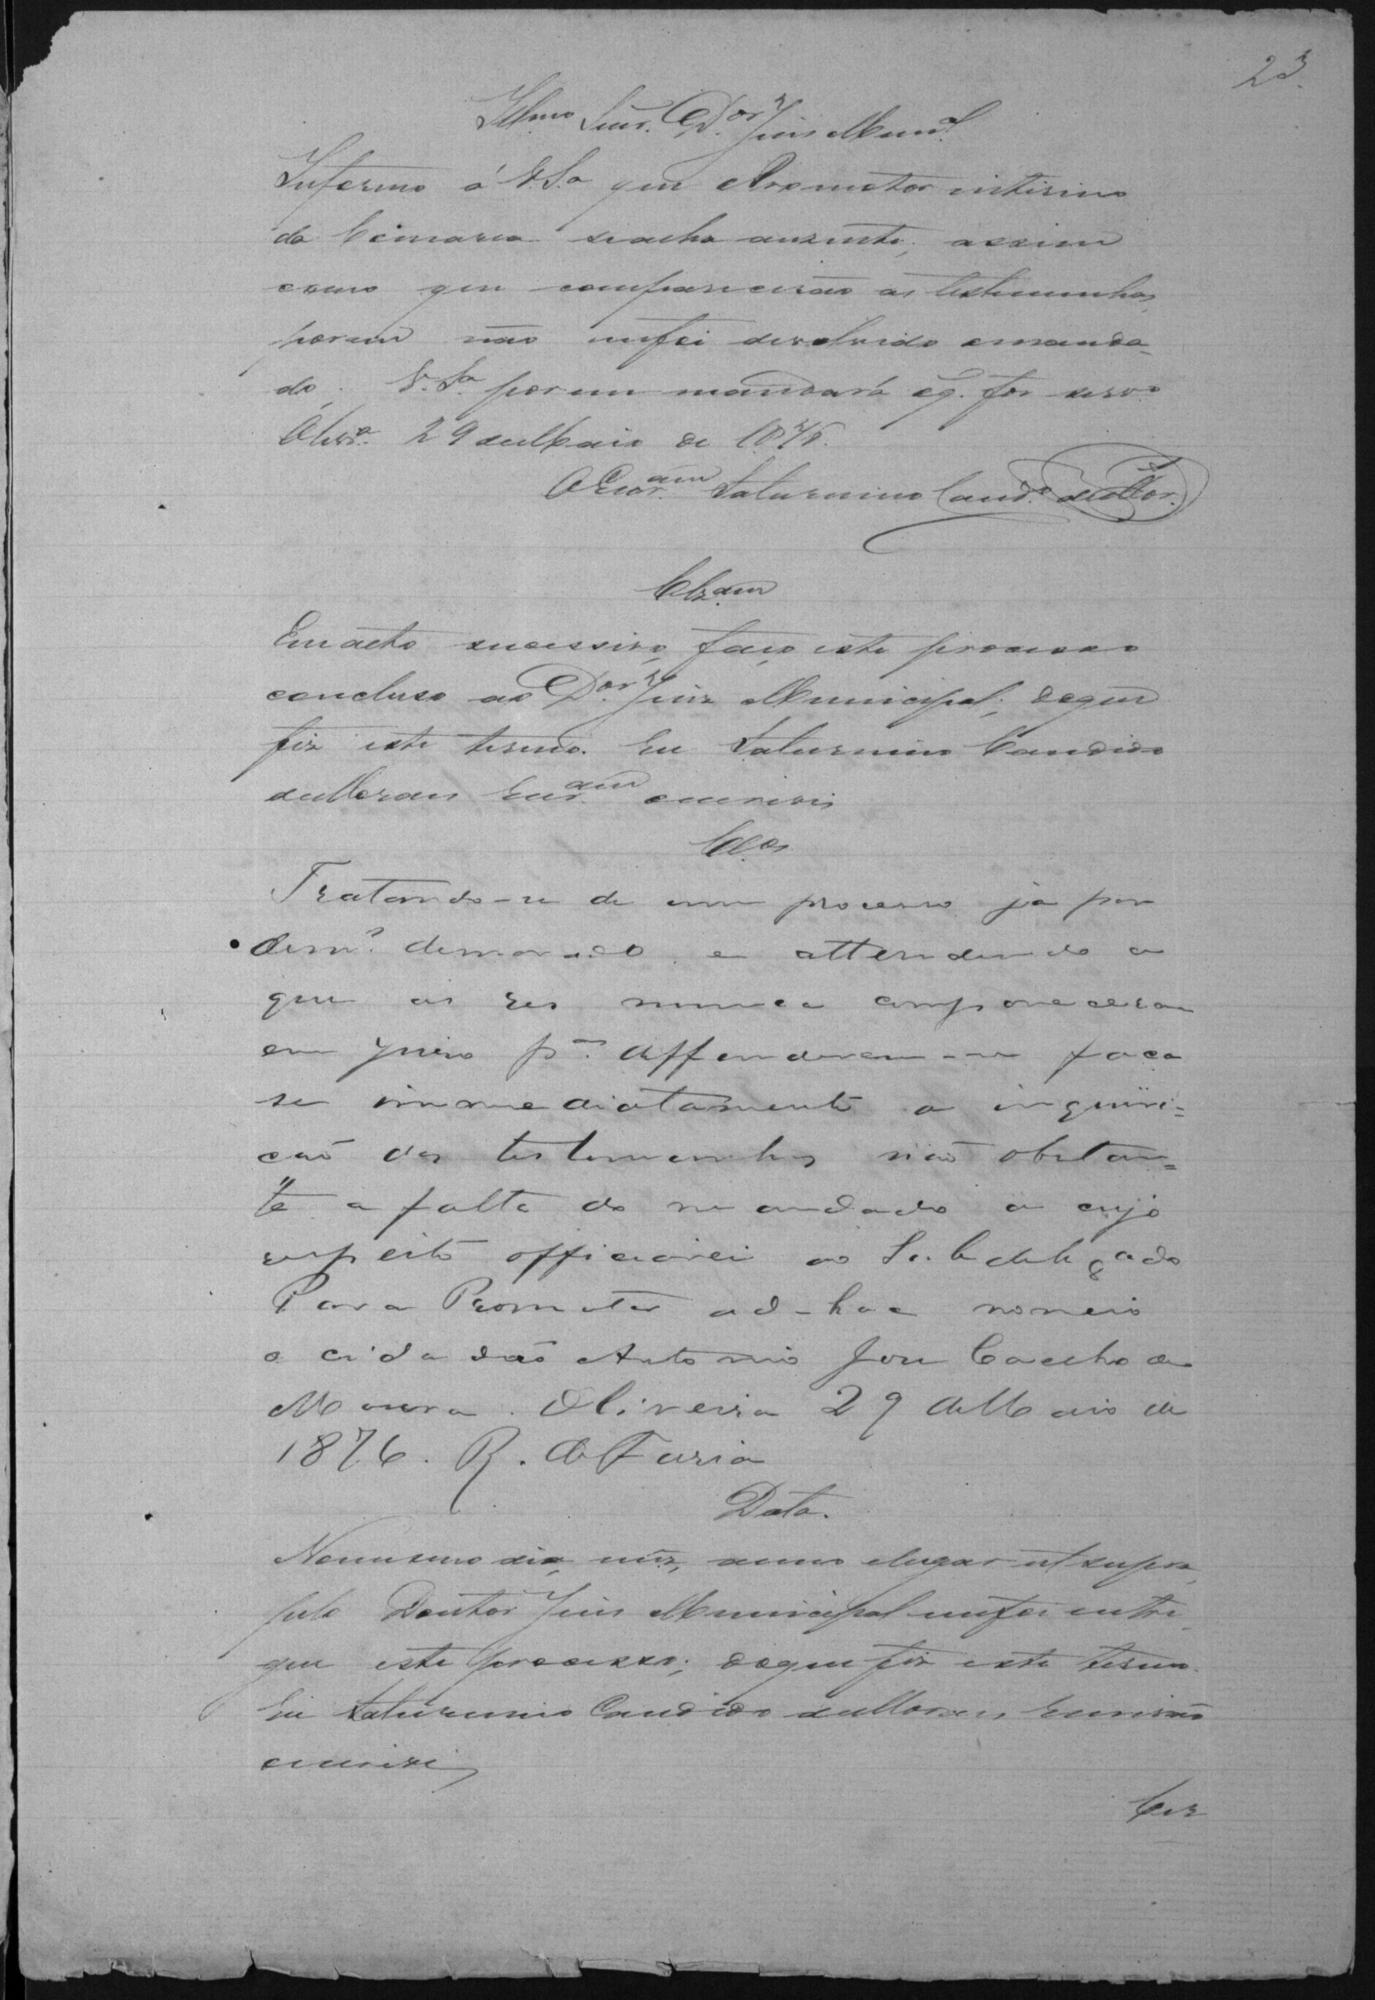 23
Ill.mo Senr. D.or Juiz Mun.al
Informo á V.Sa que o Promotor interino
da Comarca seacha auzente, assim
como que comparecerão as testemunhas,
porem não mefoi devolvido omanda-
do, V.Sa porem mandará oq. for servo
Olivra. 29 deMaio de 1876.
O Escr.am Saturnino Cand.o deMor.s
Clz.am
Em acto sucessivo, faço este processo
concluso ao D.or Juiz Municipal; doque
fiz este termo. Eu Saturnino Candido
deMoraes Escr.am oescrevi
Cl.os
Tratando-se de um processo já por
dem.s demorado e attendendo a
que os reos nunca compareceram
em juizo p.a deffenderem-se faça
se immediatamente a inquiri=
ção das testemunhas não obstan=
te a falta do mandado a cujo
respeito officiarei ao Subdelegado
Para Promotor ad-hoc nomeio
o cidadão Antonio José Coelho de
Moura. Oliveira 29 deMaio de
1876. R. deFaria
Data.
Nomesmo dia, mez, anno elugar utsupra,
pelo Doutor Juiz Municipal mefoi entre
gue este processo; doque fiz este termo.
Eu Saturnino Candido deMoraes Escrivão
oescrevi
Cer